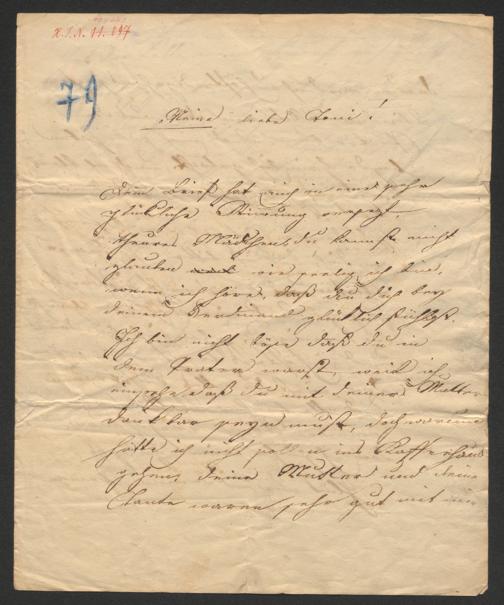 H.I.N. 11.847
79
Meine liebe Toni!
Dein Brief hat mich in eine sehr
glückliche Stimmung versezt
theures Mädchen du kannst nicht
glauben wie seelig ich bin,
wenn ich höre, daß du dich bey
deinem Ferdinand glücklich fühlst.
Ich bin nicht böse daß du in
dem Prater warst, weil ich
einsehe daß du mit deiner Mutter
dankbar seyn must, doch warum
hätte ich nicht sollen ins Kaffeehaus
gehen, deine Mutter und deine
Tante waren sehr gut mit mir